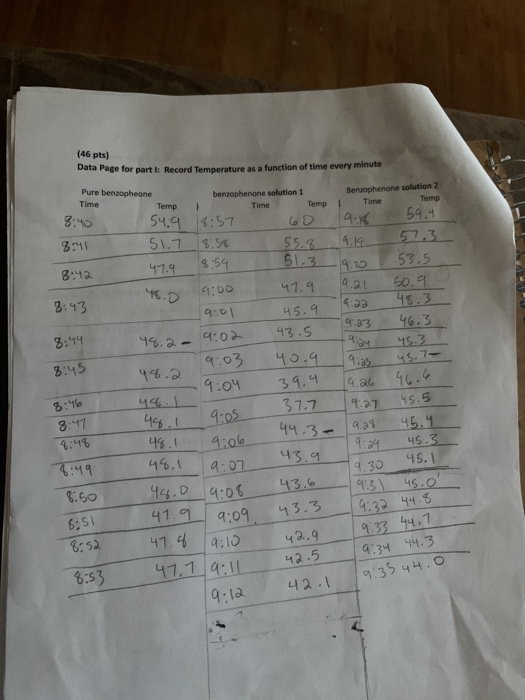 (46 pts)
Data Page for part I: Record Temperature as a function of time every minute
Pure benzopheone benzophenone solution 1 Benzophenone solution 2
Time Temp Time Temp Time Temp
8:40 54.9 8:57 60 9:18 59.4
8:41 51.7 8:58 55.8 9:19 57.3
8:42 47.9 8:59 51.3 9:20 53.5
8:43 48.0 9:00 47.9 9:21 50.9
9:01 45.9 9:22 48.3
8:44 48.2 - 9:02 43.5 9:23 46.3
9:24 45.3
8:45 48.2 9:03 40.9 9:25 45.7 -
9:04 39.4 9:26 46.6
8:46 48.1 9:05 37.7 9:27 45.5
8:47 48.1 9:06 44.3 - 9:28 45.4
8:48 48.1 9:07 43.9 9:29 45.3
8:49 48.1 9:08 43.6 9:30 45.1
8:50 48.0 9:09 43.3 9:31 45.0
8:51 47.9 9:32 44.8
8:52 47.8 9:10 42.9 9:33 44.7
8:53 47.7 9:11 42.5 9:34 44.3
9:12 42.1 9:35 44.0